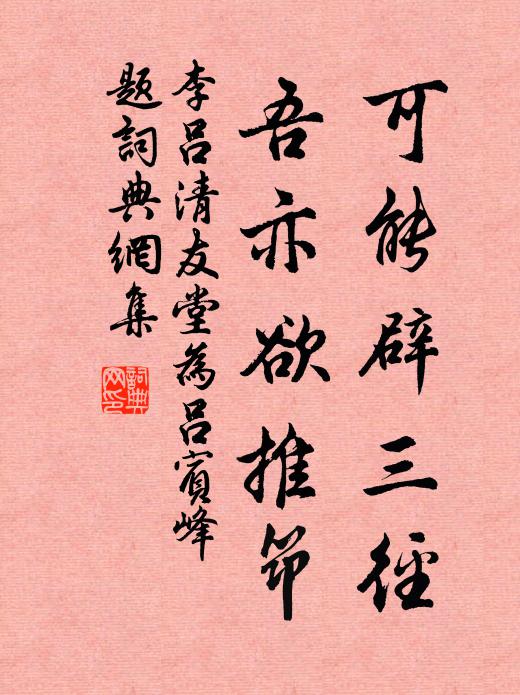 可能辟三徑
吾亦欲推笻
李呂清友堂為呂賓峰
題詞典網集
詞典网印